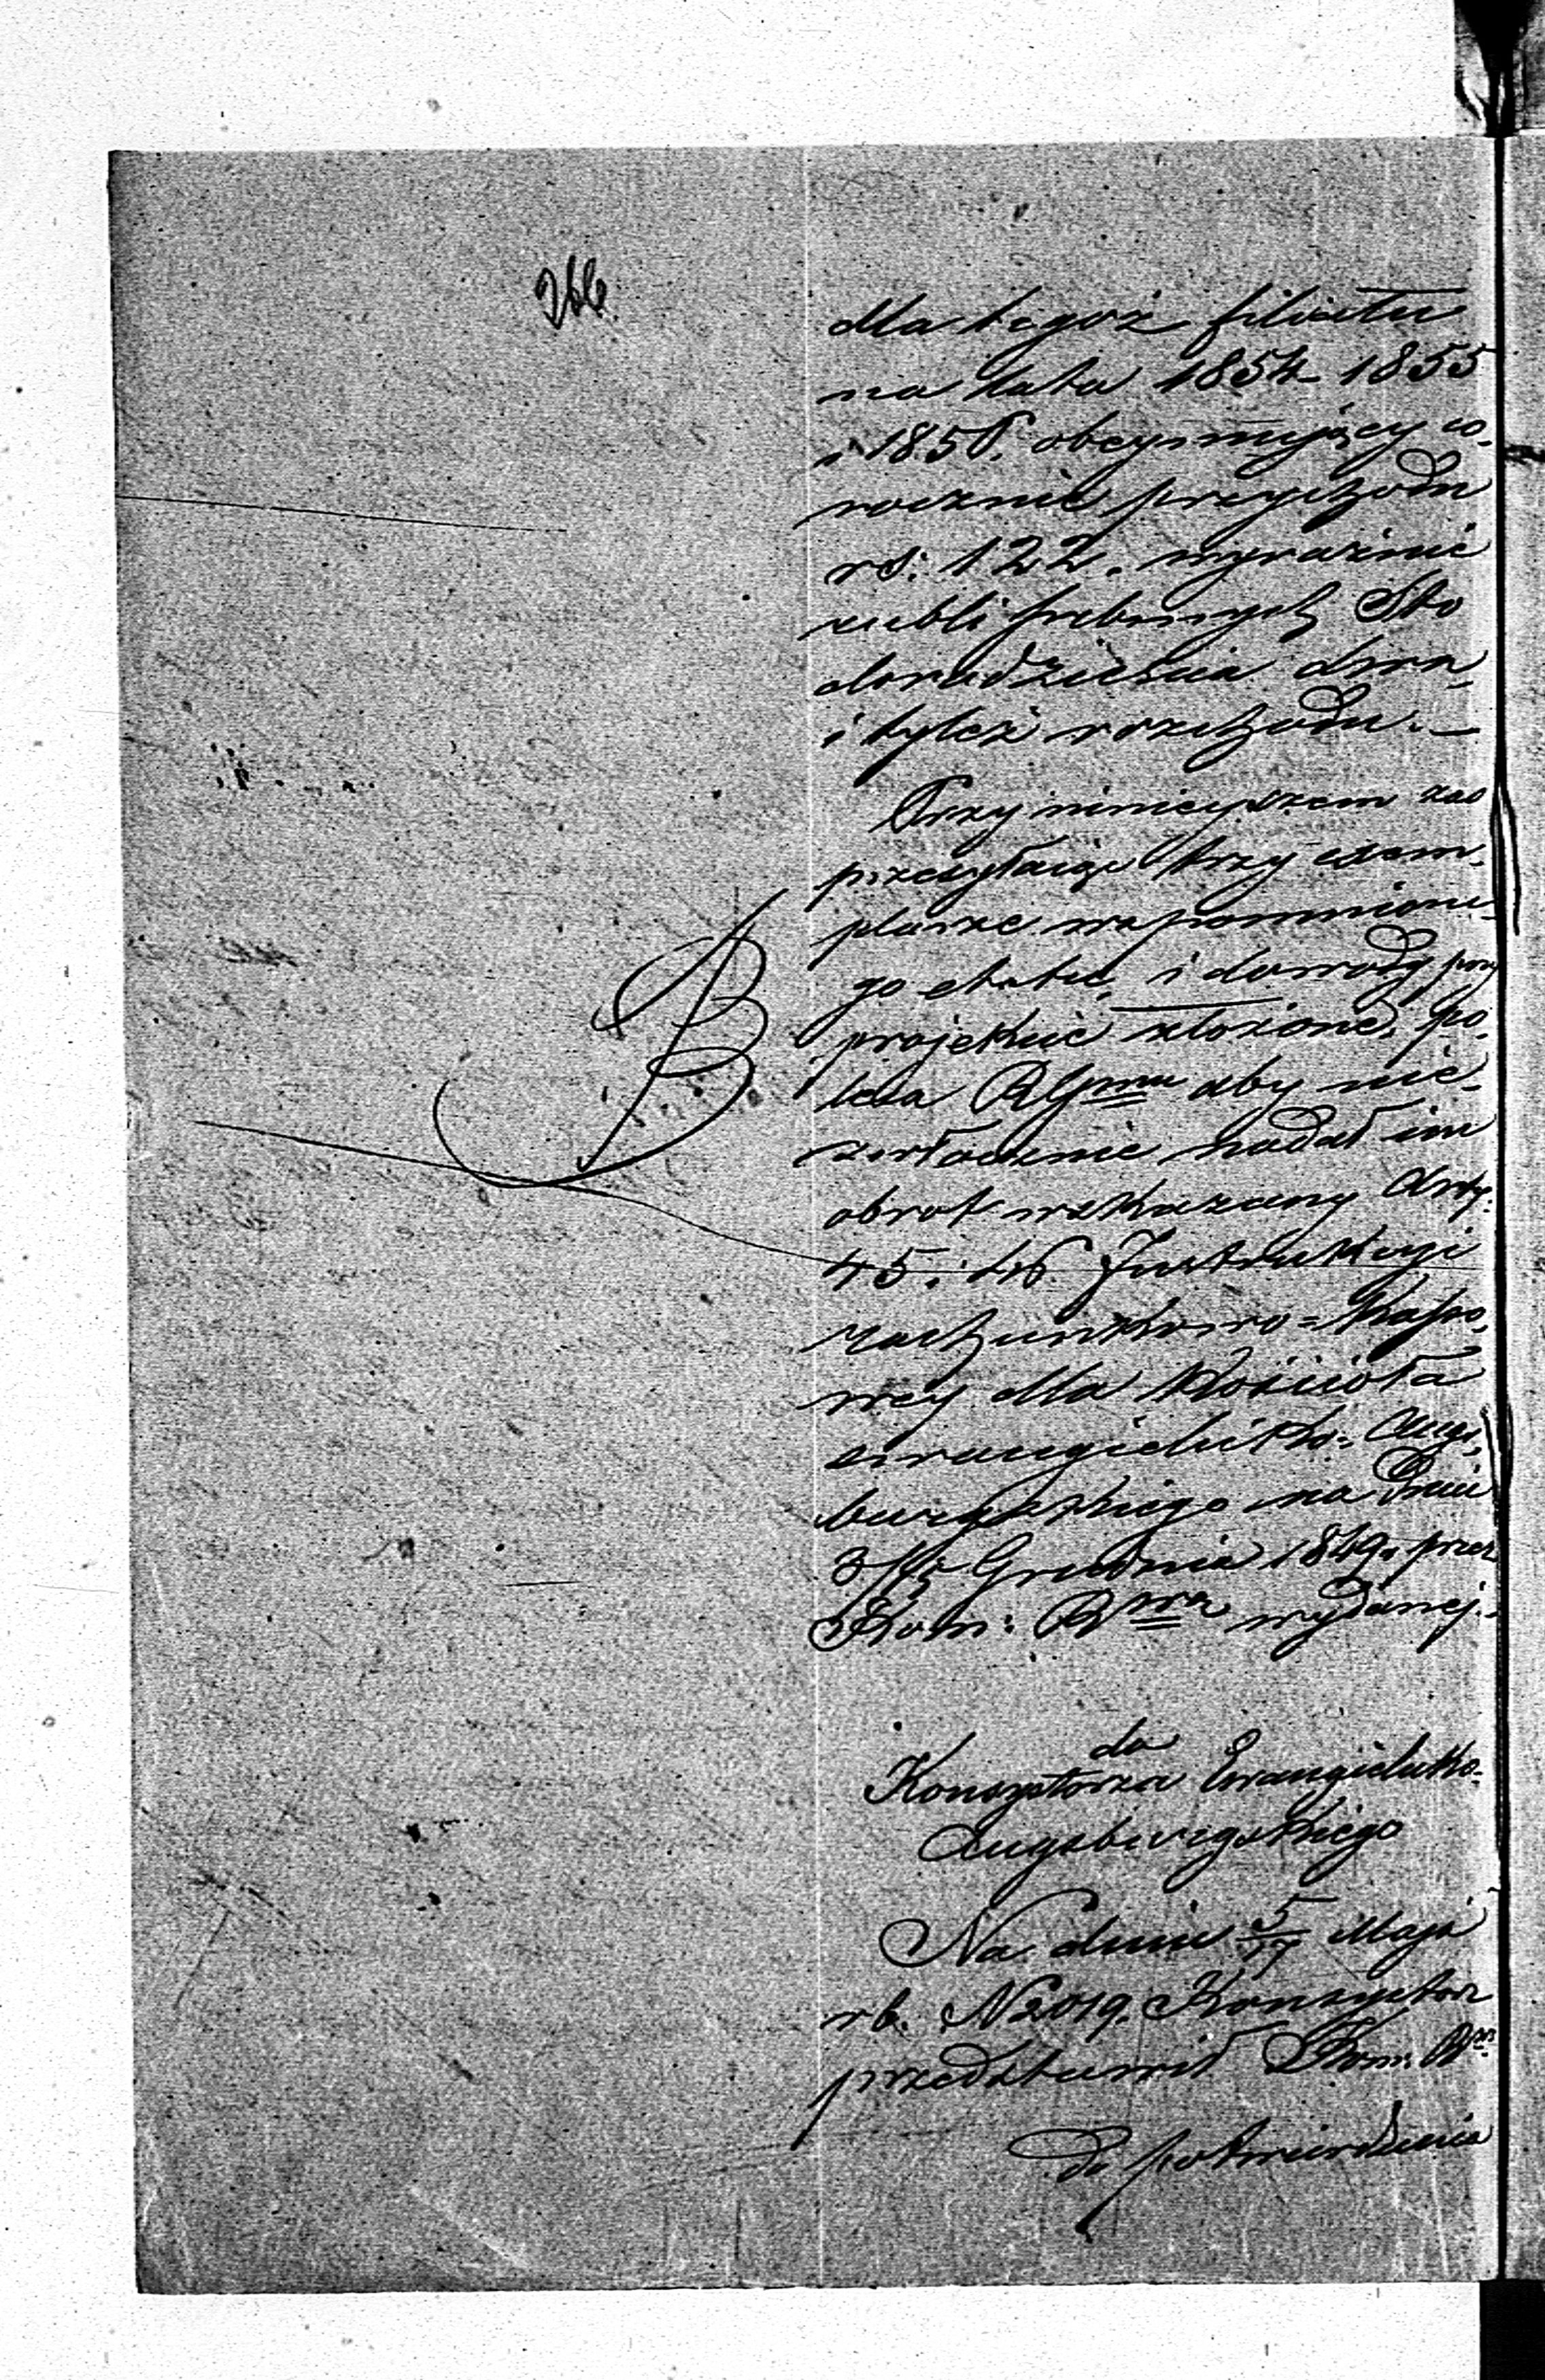 266.
dla tegoż filiału
na lata 1854. 1855
i 1856. obejmujący co-
rocznie przychodu
rs: 122. wyraźnie
rubli srebrnych Sto
dwadzieścia dwa,
i tyleż rozchodu.—
Przy niniejszem zaś
przesyłając trzy exem-
plarze wspomnione-
go etatu, i dowody przy
projekcie złożone, po-
leca RGmu aby nie-
zwłocznie nadał im
obrot wskazany Arty:
45. i 46 Instrukcyi
rachunkowo=kasso-
wey dla Kościoła
ewangielicko=Augs-
burgskiego na Dniu
3/15 Grudnia 1849. przez
Kom: Rwą wydanej.
do
Konsystorza Ewangielicko-
Augsburgskiego
Na dniu 5/17 Maja
rb. N 2019. Konsystorz
przedstawił Kom: R
do potwierdzenia